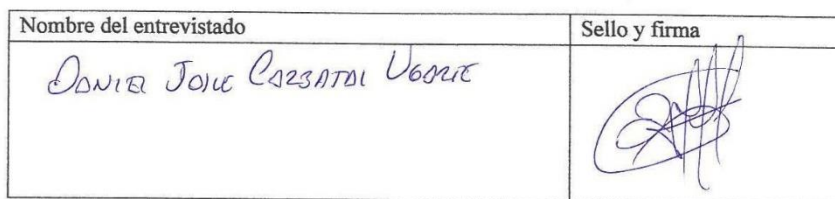 Nombre del entrevistado
Sello y firma
Daniel Jorge Carbajal Ugarte